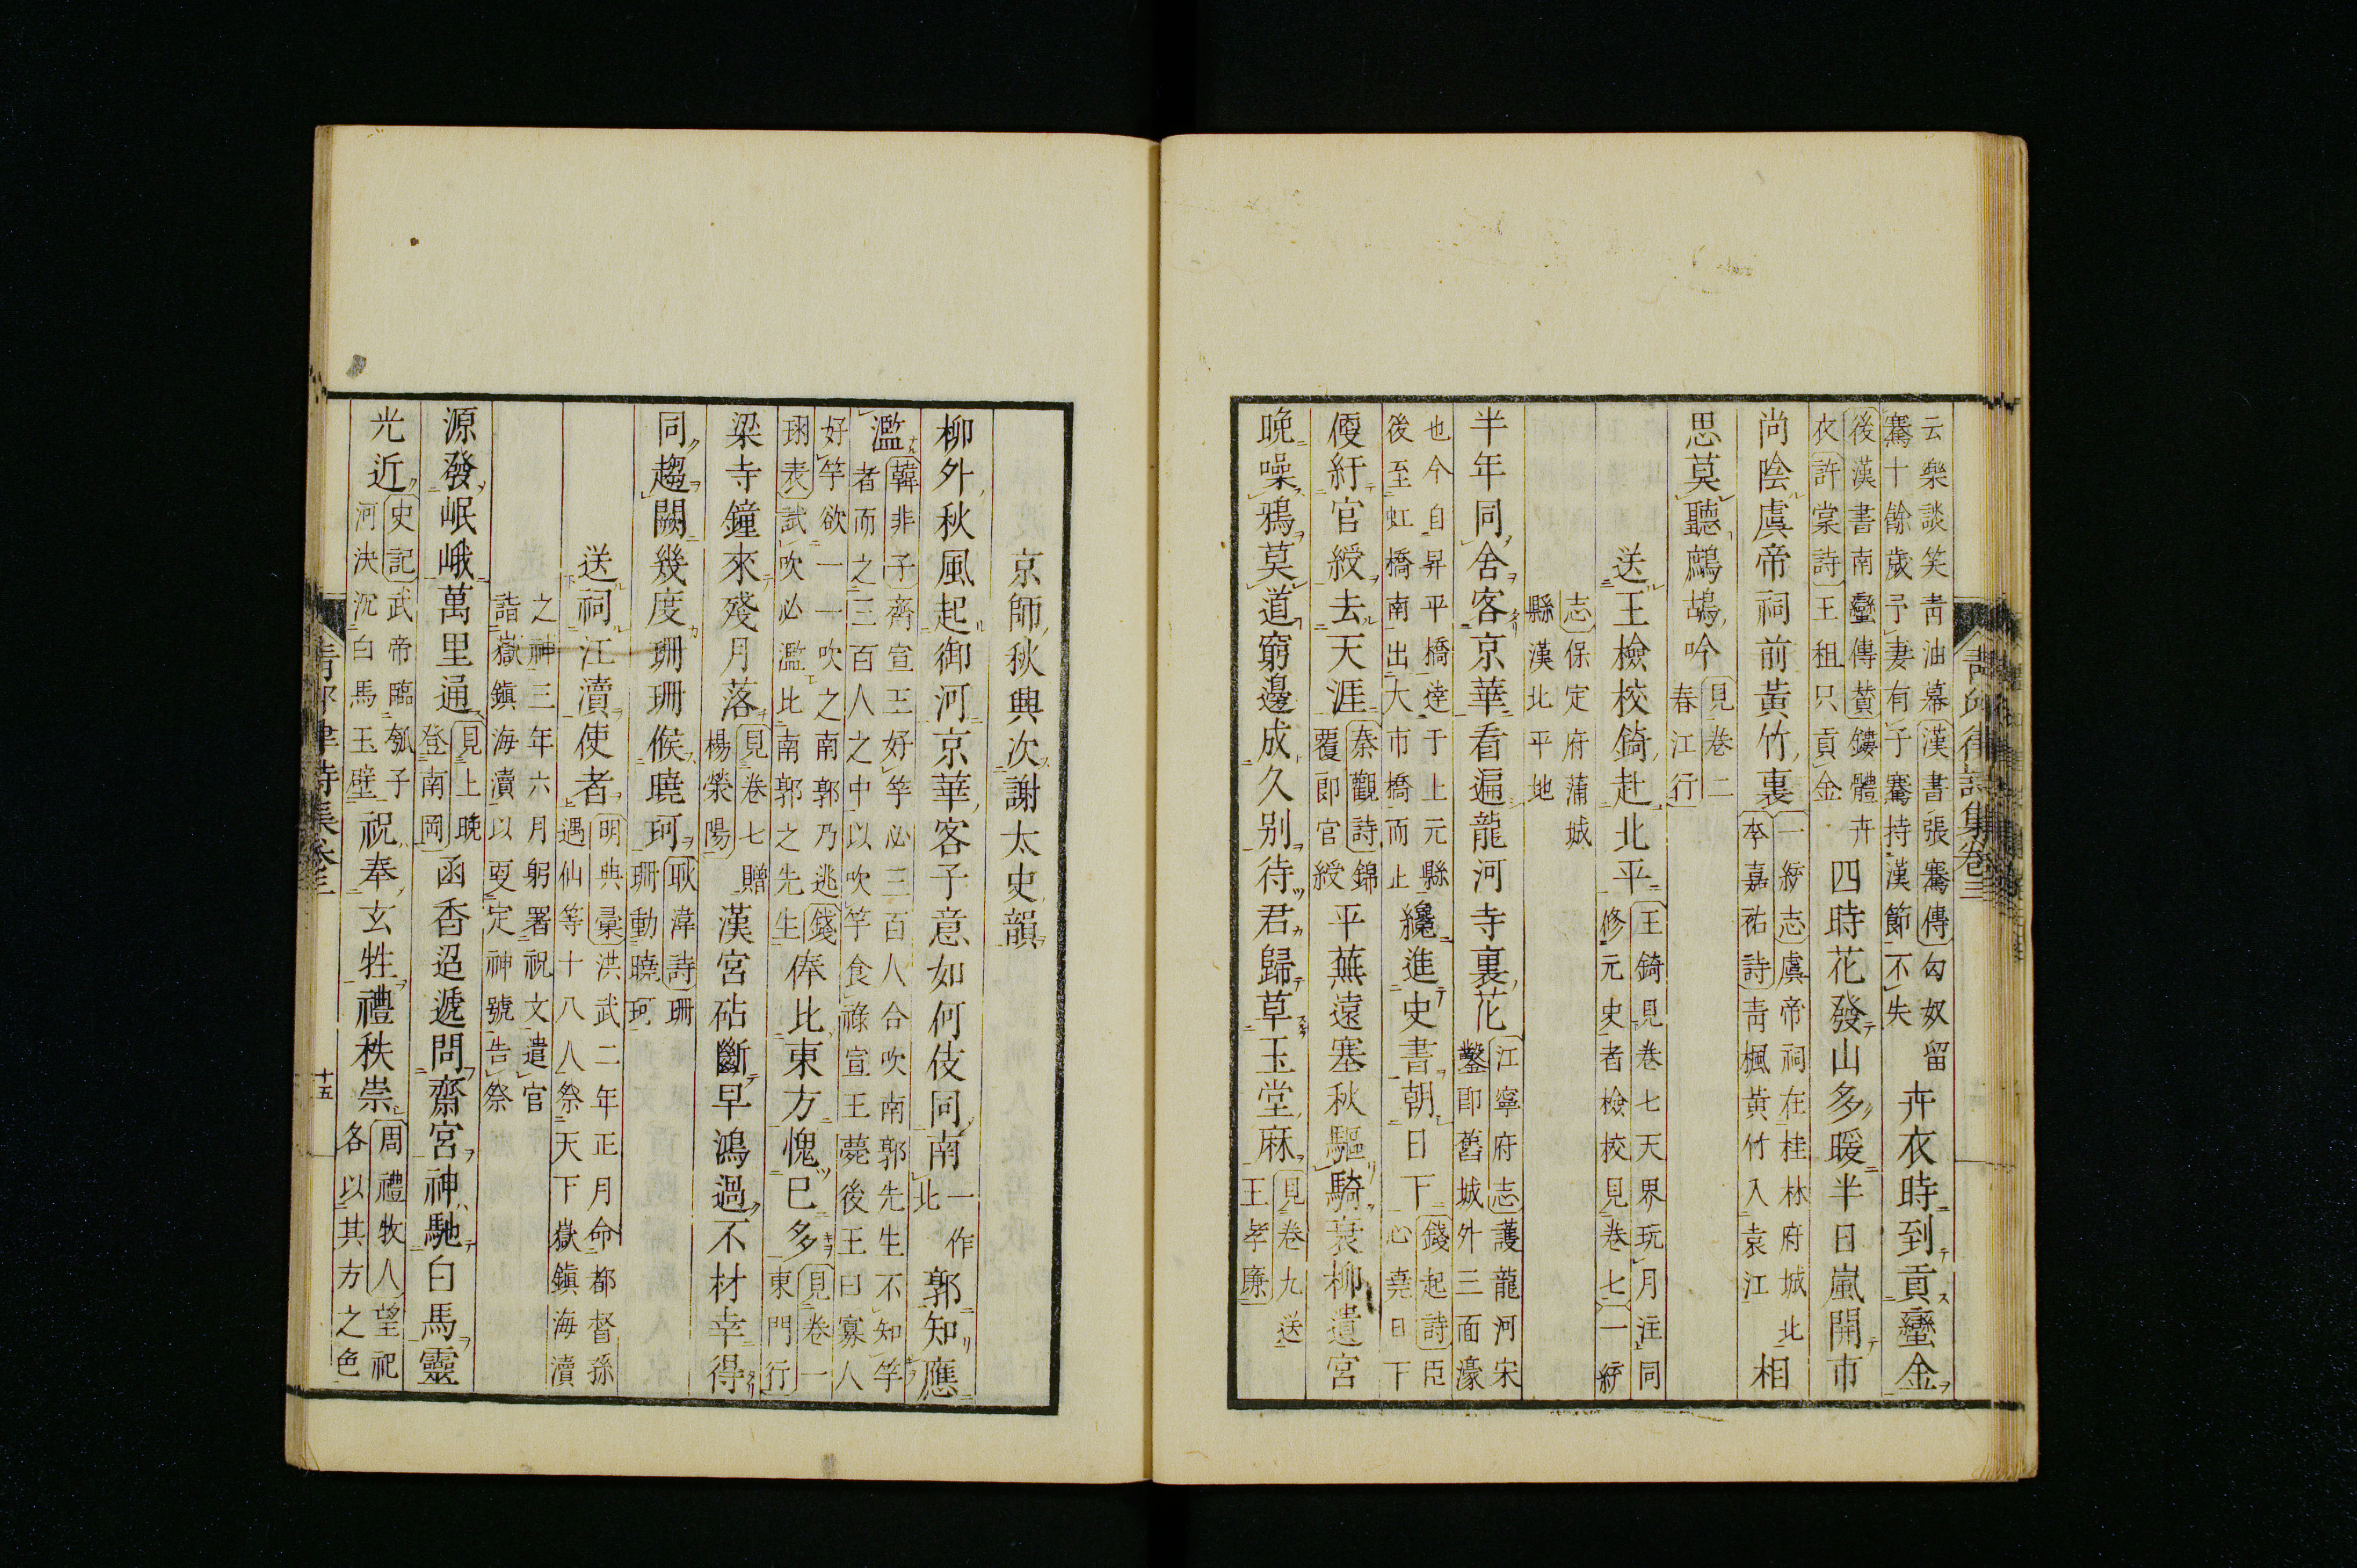 云樂談笑靑油幕漢書張騫傳匈奴留
騫十餘歲予妻有子騫持漢節不失
卉衣時到貢蠻金
後漢書南蠻傳贊鏤體卉
衣許棠詩王租只貢金
四時花發山多暖半日嵐開市
尚陰虞帝祠前黃竹裏
一統志虞帝祠在桂林府城北
李嘉祐詩靑楓黃竹入袁江
相
思莫聽鷓鴣吟
見卷二
春江行
送王檢校錡赴北平
王錡見卷七天界玩月注同
修元史者檢校見卷七一統
志保定府蒲城
縣漢北平地
半年同舍客京華看遍龍河寺裏花
江寧府志護龍河宋
鑿卽舊城外三面濠
也今自昇平橋達于上元縣
後至虹橋南出大市橋而止
纔進史書朝日下
錢起詩臣
心堯日下
便紆官綬去天涯
秦觀詩錦
覆郎官綬
平蕪遠塞秋驅騎衰柳遺宮
晩噪鴉莫道窮邊成久別待君歸草玉堂麻
見卷九送
王孝廉
京師秋興次謝太史韻
柳外秋風起御河京華客子意如何伎同南
一作
北
郭知應
濫
韓非子齊宣王好竽必三百人合吹南郭先生不知竽
者而之三百人之中以吹竽食祿宣王薨後王曰寡人
好竽欲一一吹之南郭乃逃錢
珝表試吹必濫比南郭之先生
俸比東方愧已多
見卷一
東門行
梁寺鐘來殘月落
見卷七贈
楊滎陽
漢宮砧斷早鴻過不材幸得
同趨闕幾度珊珊候曉珂
耿湋詩珊
珊動曉珂
送祠江瀆使者
明典彙洪武二年正月命都督孫
遇仙等十八人祭天下嶽鎭海瀆
之神三年六月躬署祝文遣官
詣嶽鎭海瀆以更定神號告祭
源發岷峨萬里通
見上晩
登南岡
函香迢遞問齋宮神馳白馬靈
光近
史記武帝臨瓠子
河決沉白馬玉璧
祝奉玄牲禮秩崇
周禮牧人望祀
各以其方之色
十五